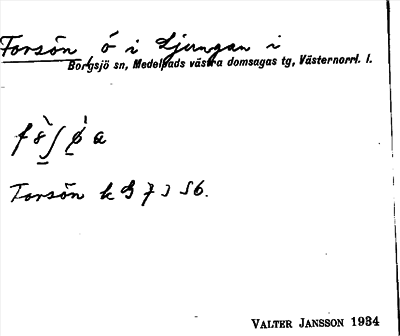 Torsön ö i Ljungan i
Borgsjö sn, Medelpads västra domsagas tg, Västernorrl. l.
Torsön k
VALTER JANSSON 1934